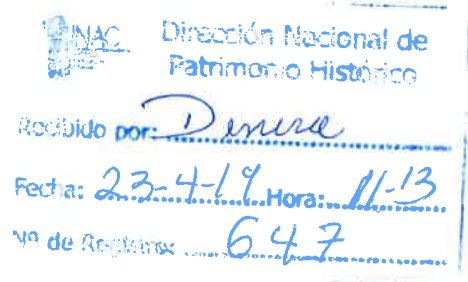 INAC Dirección Nacional de
Patrimonio Histórico
Recibido por:
Fecha: 23-4-19 Hora: 11-13
Nº de Registro: 647